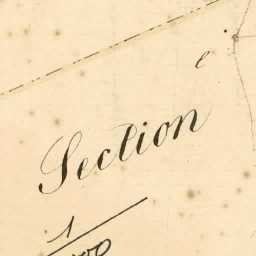 e
Section
1